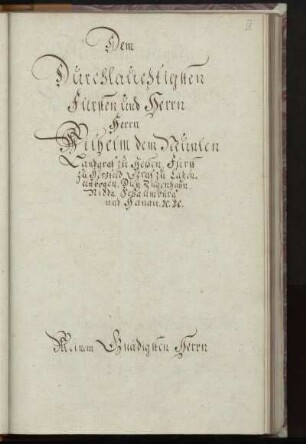 Dem
Durchlauchtigsten
Fürsten und Herrn
Herrn
Wilhelm dem Neünten
Landgraf zu Hessen, Fürst
zu Hersfeld Graf zu Catzen
elnbogen, Dietz Ziegenhain
Nidda Schaumburg
und Hanau. ꝛc. ꝛc.
Meinem Gnädigsten Herrn